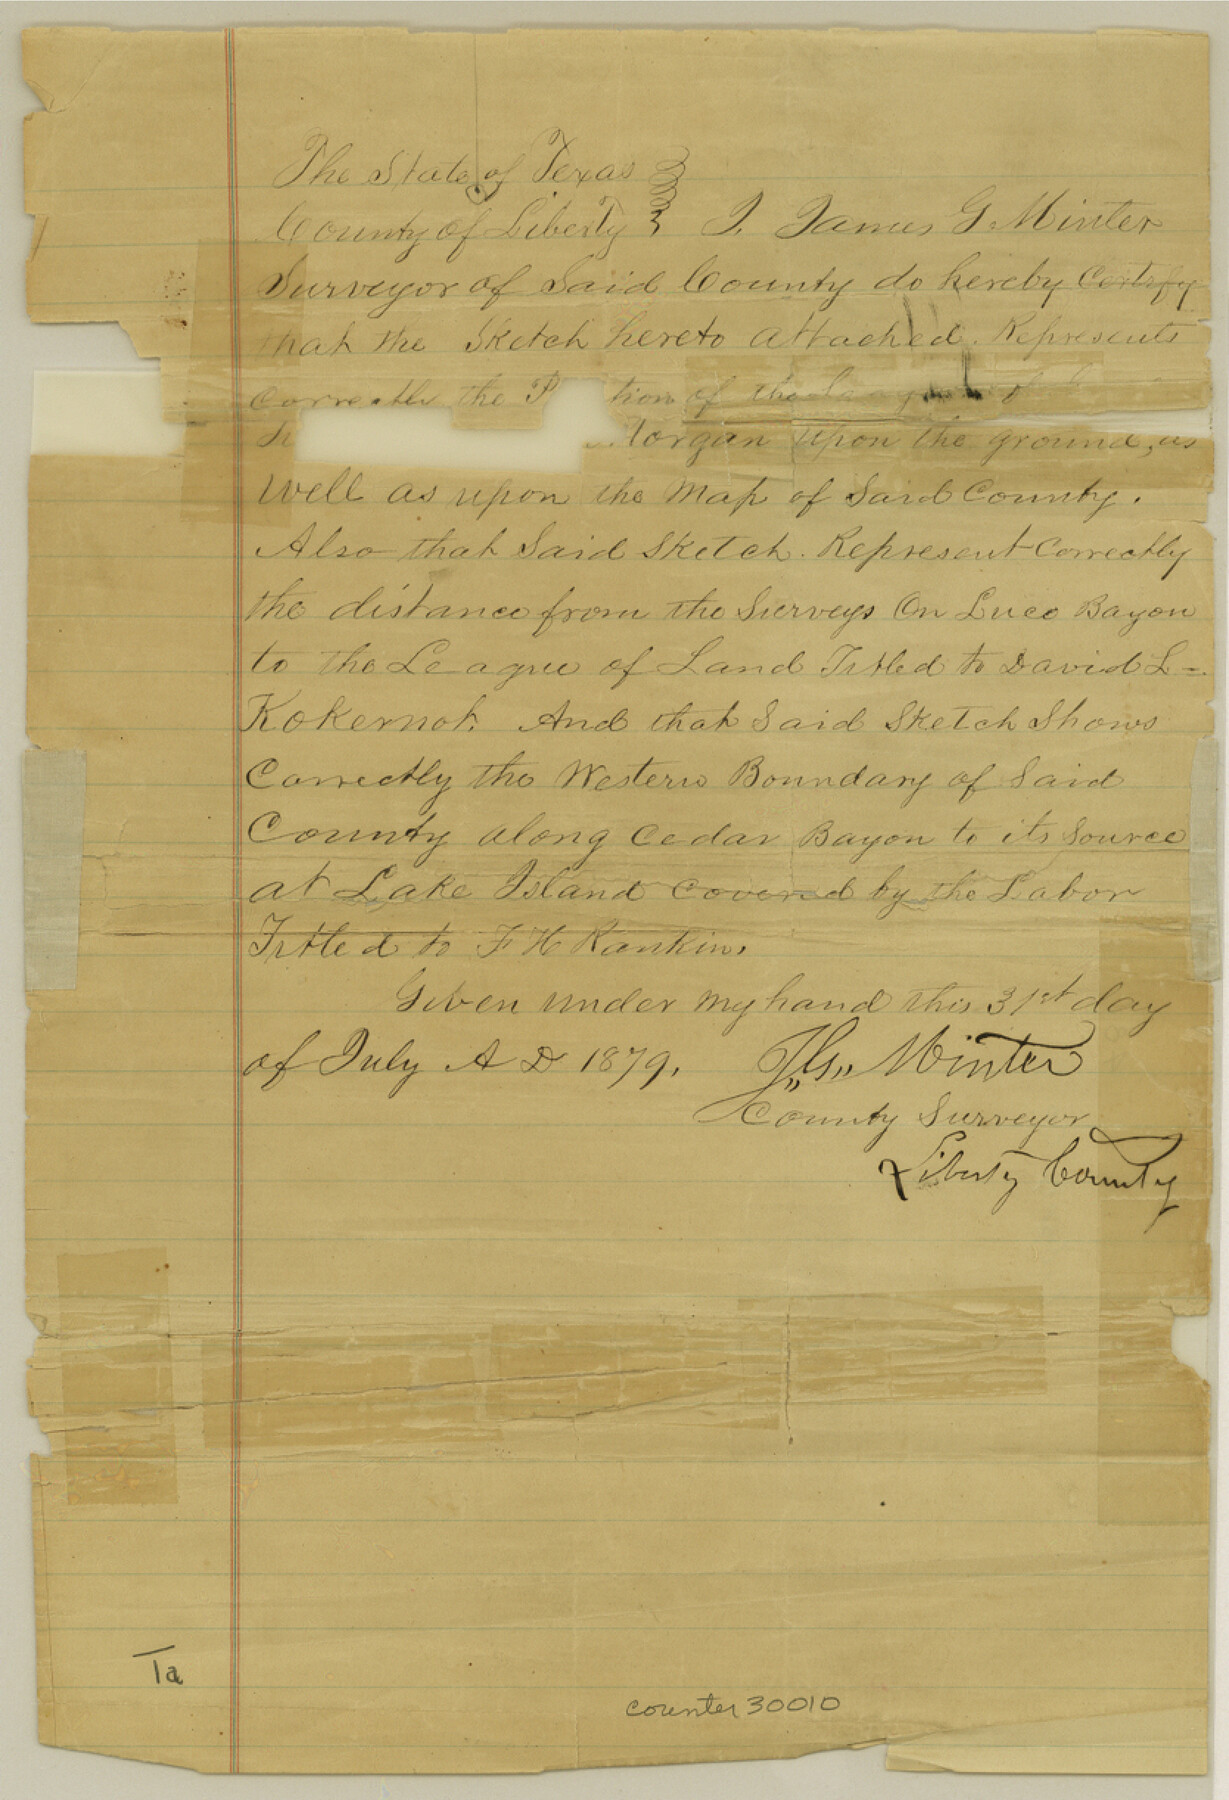 The State of Texas
County of Liberty } I, James G. Minter
Surveyor of Said County do hereby Certify
that the Sketch hereto attached. Represents
Correctly the P tion of the of
Morgan upon the ground, as
well as upon the Map of Said County.
Also that Said Sketch. Represent Correctly
the distance from the Surveys On Luce Bayou
to the League of Land Titled to David L-
Kokernot. And that Said Sketch Shows
Correctly the Western Boundary of Said
County along Cedar Bayou to its Source
at Lake Island covered by the Labor
Titled to F H Rankin.
Given under my hand this 31st day
of July A D 1879. J,,G,, Minter
County Surveyor
Liberty County
1a
counter 30010